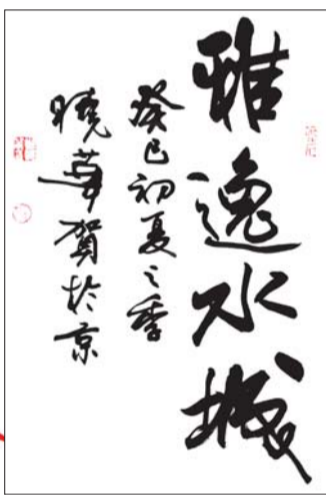 雅逸水城
癸巳初夏之季
曉華賀於京